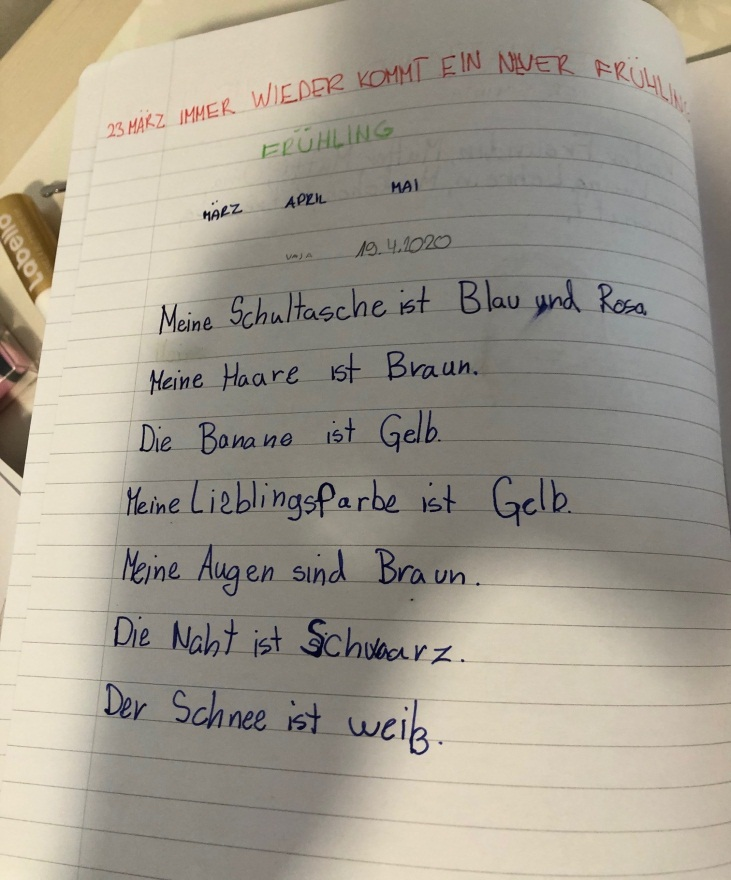 23 MÄRZ IMMER WIEDER KOMMT EIN NEUER FRÜHLING
FRÜHLING
MÄRZ APRIL MAI
19.4.2020
Meine Schultasche ist Blau und Rosa.
Meine Haare ist Braun.
Die Banane ist Gelb.
Meine Lieblingsfarbe ist Gelb.
Meine Augen sind Braun.
Die Naht ist Schwarz.
Der Schnee ist weiß.
Labello